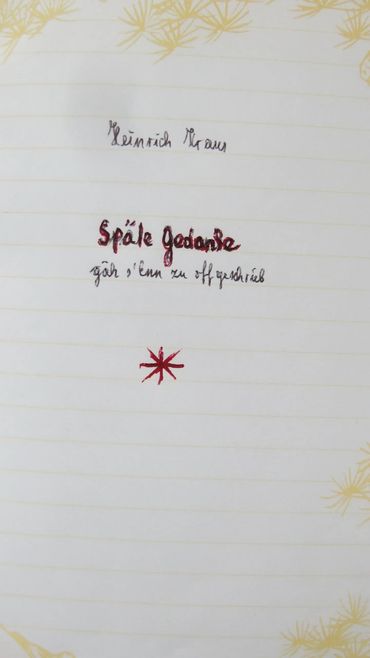 Heinrich Kraus
Späte Gedanke
gäh s'Enn zu offgeschrieb